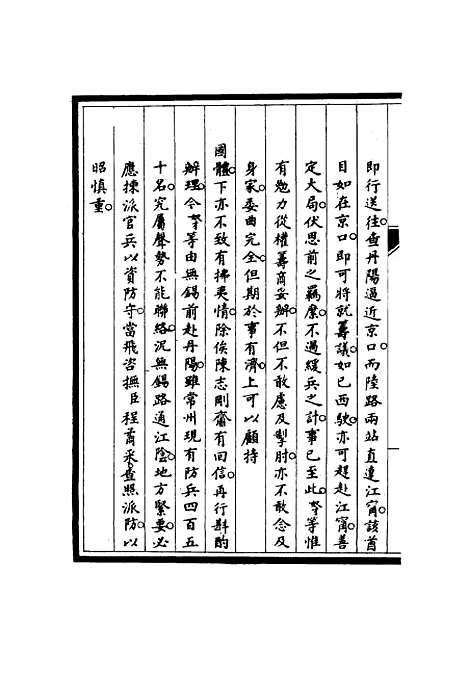 即行送往。查丹陽逼近京口。而陸路兩站直達江甯。該酋
目如在京口。即可將就籌議。如已西駛。亦可趕赴江甯。善
定大局。伏思前之羈縻。不過緩兵之計。事已至此。等惟
有勉力從權籌商妥辦。不但不敢慮及掣肘。亦不敢念及
身家。委曲完全。但期於事有濟。上可以顧持
國體。下亦不致有拂夷情。除俟陳志剛齎有回信。再行斟酌
辦理。今等由無錫前赴丹陽。雖常州現有防兵四百五
十名。究屬聲勢不能聯絡。況無錫路通江陰。地方緊要。必
應揀派官兵以資防守。當飛咨撫臣程矞采。查照派防。以
昭慎重。